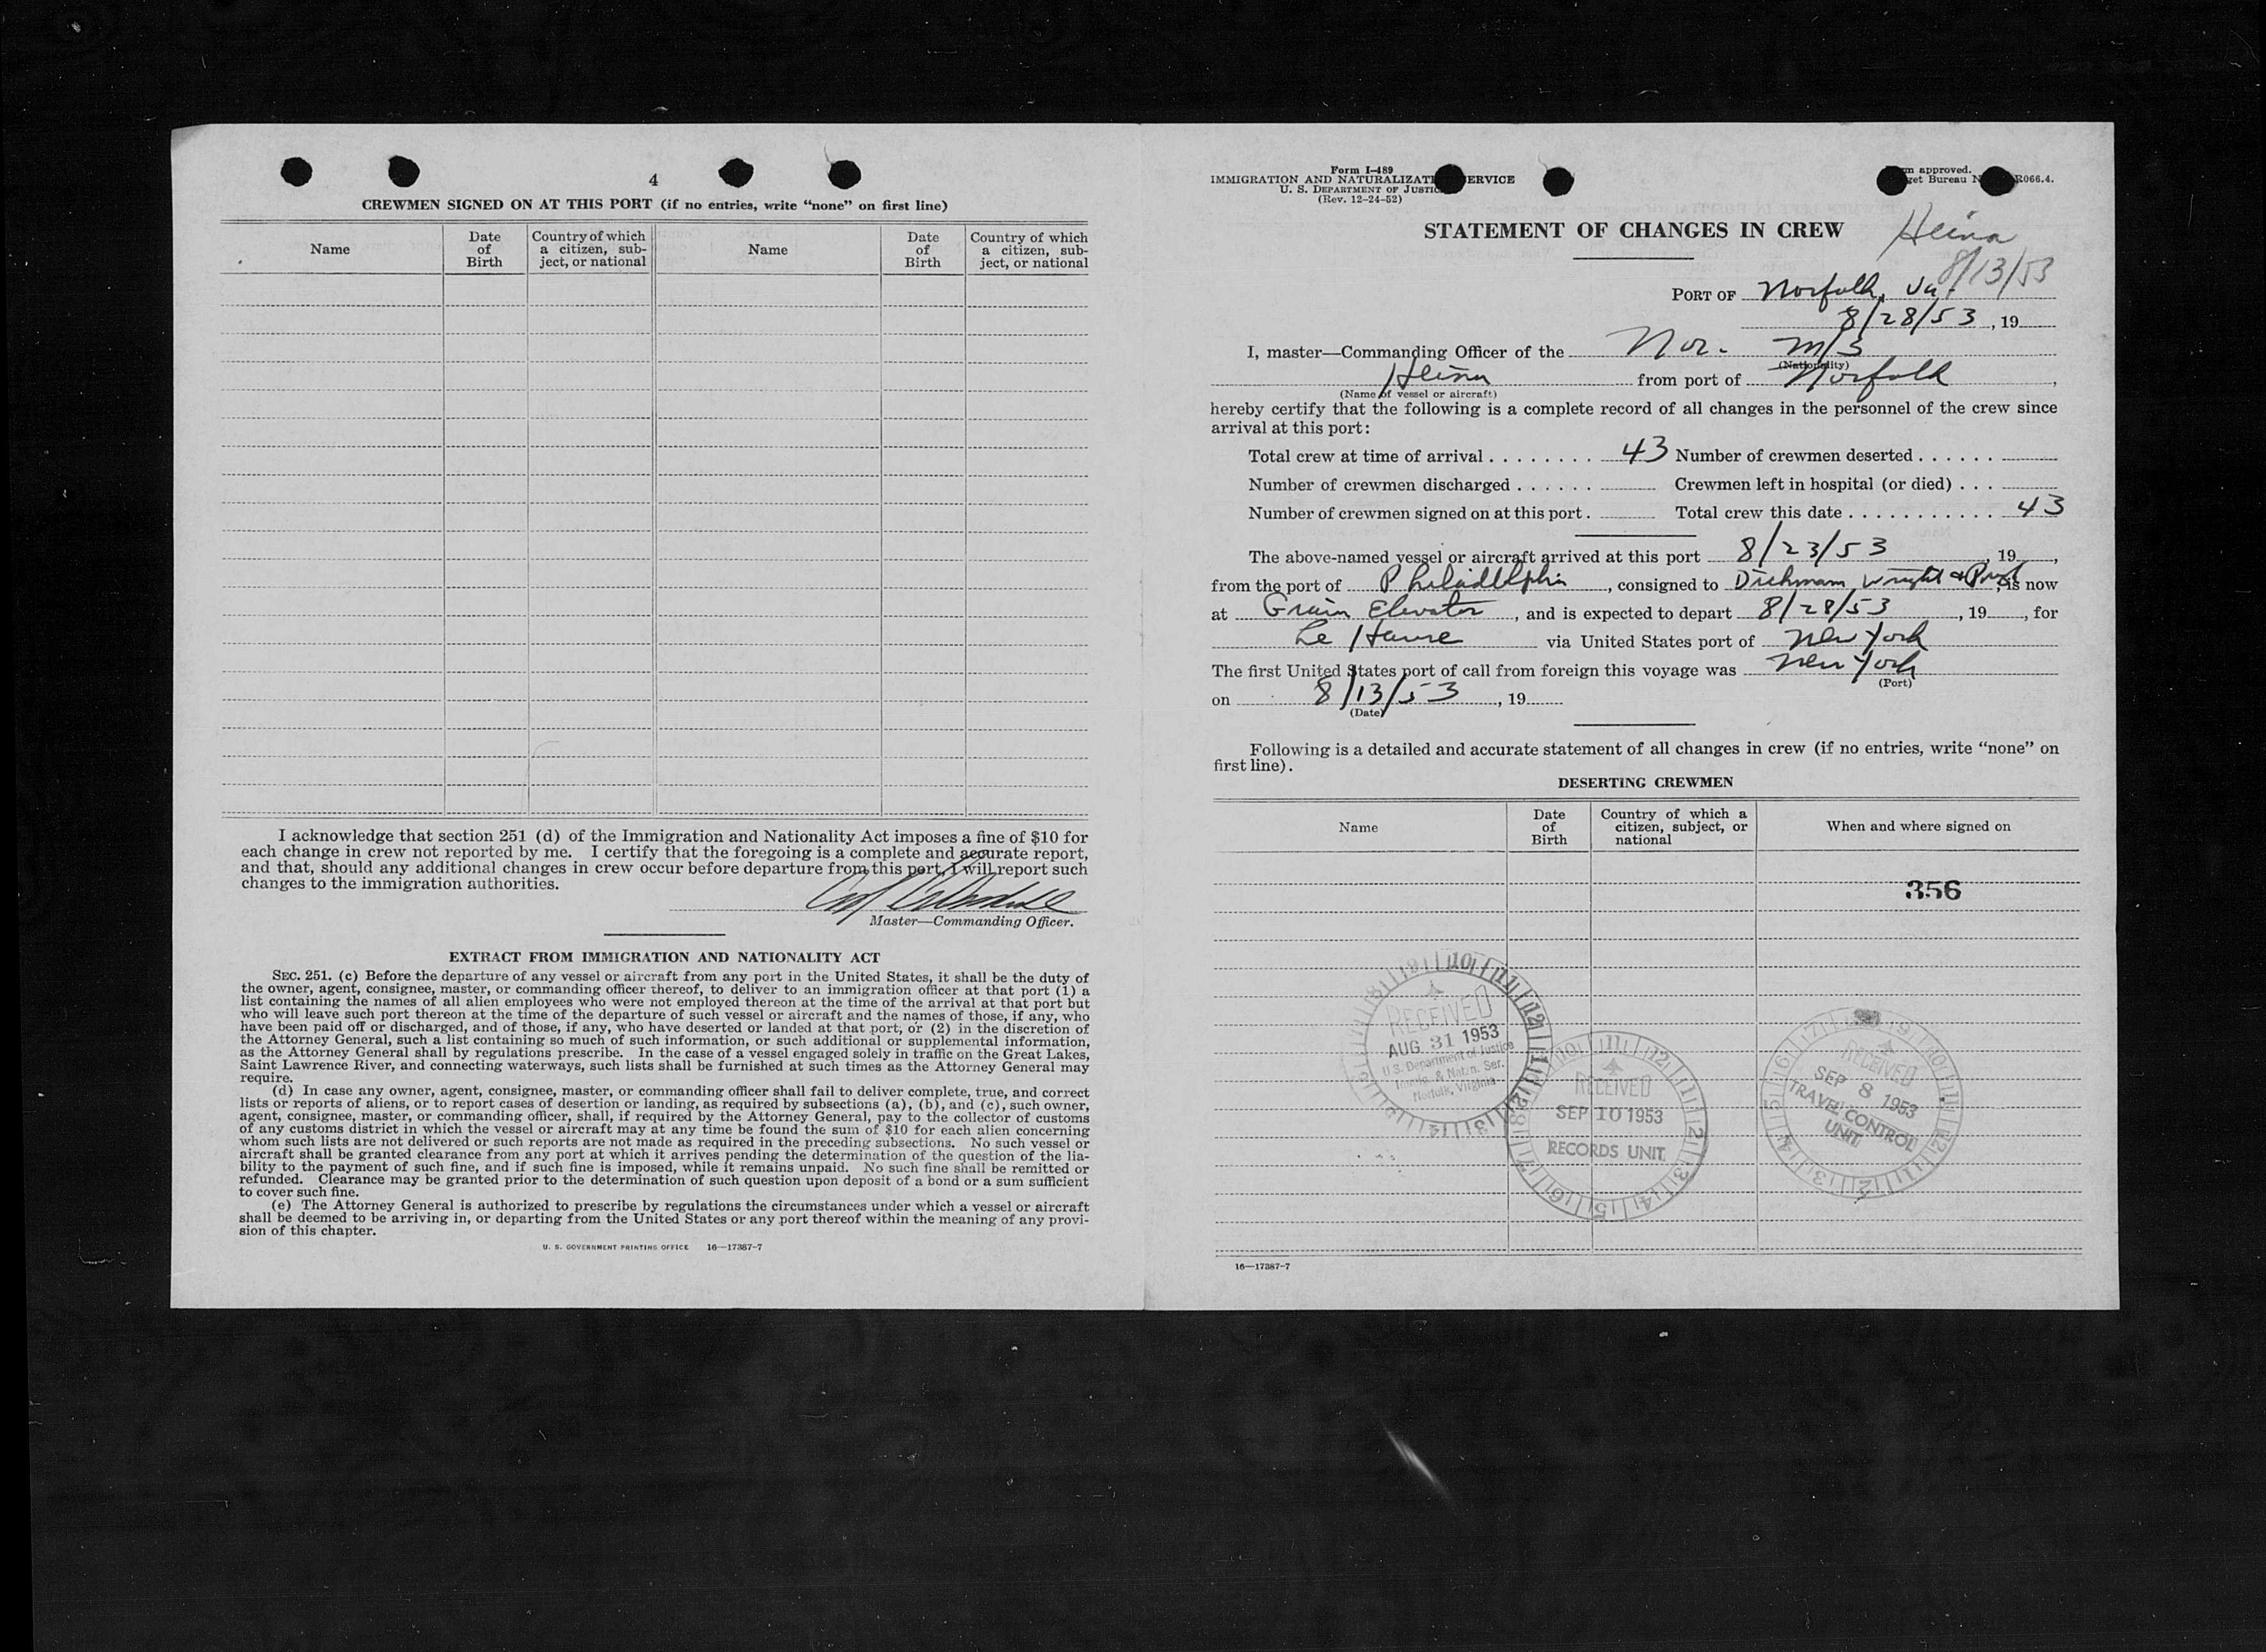 4
CREWMEN SIGNED ON AT THIS PORT (if no entries, write “none” on first line)
Name Date of Birth Country of which a citizen, sub-ject, or national Name Date of Birth Country of which a citizen, sub-ject, or national
I acknowledge that section 251 (d) of the Immigration and Nationality Act imposes a fine of $10 for
each change in crew not reported by me. I certify that the foregoing is a complete and accurate report,
and that, should any additional changes in crew occur before departure from this port, I will report such
changes to the immigration authorities.
Master—Commanding Officer.
EXTRACT FROM IMMIGRATION AND NATIONALITY ACT
SEC. 251. (c) Before the departure of any vessel or aircraft from any port in the United States, it shall be the duty of
the owner, agent, consignee, master, or commanding officer thereof, to deliver to an immigration officer at that port (1) a
list containing the names of all alien employees who were not employed thereon at the time of the arrival at that port but
who will leave such port thereon at the time of the departure of such vessel or aircraft and the names of those, if any, who
have been paid off or discharged, and of those, if any, who have deserted or landed at that port, or (2) in the discretion of
the Attorney General, such a list containing so much of such information, or such additional or supplemental information,
as the Attorney General shall by regulations prescribe. In the case of a vessel engaged solely in traffic on the Great Lakes,
Saint Lawrence River, and connecting waterways, such lists shall be furnished at such times as the Attorney General may
require.
(d) In case any owner, agent, consignee, master, or commanding officer shall fail to deliver complete, true, and correct
lists or reports of aliens, or to report cases of desertion or landing, as required by subsections (a), (b), and (c), such owner,
agent, consignee, master, or commanding officer, shall, if required by the Attorney General, pay to the collector of customs
of any customs district in which the vessel or aircraft may at any time be found the sum of $10 for each alien concerning
whom such lists are not delivered or such reports are not made as required in the preceding subsections. No such vessel or
aircraft shall be granted clearance from any port at which it arrives pending the determination of the question of the lia-
bility to the payment of such fine, and if such fine is imposed, while it remains unpaid. No such fine shall be remitted or
refunded. Clearance may be granted prior to the determination of such question upon deposit of a bond or a sum sufficient
to cover such fine.
(e) The Attorney General is authorized to prescribe by regulations the circumstances under which a vessel or aircraft
shall be deemed to be arriving in, or departing from the United States or any port thereof within the meaning of any provi-
sion of this chapter.
U. S. GOVERNMENT PRINTING OFFICE 16—17387-7
Form I-489
IMMIGRATION AND NATURALIZATI ERVICE
U. S. DEPARTMENT OF JUSTIC
(Rev. 12-24-52)
m approved.
get Bureau N R066.4.
STATEMENT OF CHANGES IN CREW
Heina
8/13/53
PORT OF Norfolk, Va.
8/28/53, 19
I, master—Commanding Officer of the Nor. M/S
(Nationality)
Heina from port of Norfolk,
(Name of vessel or aircraft)
hereby certify that the following is a complete record of all changes in the personnel of the crew since
arrival at this port:
Total crew at time of arrival . . . . . . . . 43 Number of crewmen deserted . . . . . .
Number of crewmen discharged . . . . . . Crewmen left in hospital (or died) . . .
Number of crewmen signed on at this port . Total crew this date . . . . . . . . . . . . 43
The above-named vessel or aircraft arrived at this port 8/23/53, 19,
from the port of Philadelphia, consigned to Wright & is now
at Grain Elevator, and is expected to depart 8/28/53, 19, for
Le Havre via United States port of New York
The first United States port of call from foreign this voyage was New York
(Port)
on 8/13/53, 19
(Date)
Following is a detailed and accurate statement of all changes in crew (if no entries, write “none” on
first line).
DESERTING CREWMEN
Name Date of Birth Country of which a citizen, subject, or national When and where signed on
356
RECEIVED
AUG 31 1953
U.S. Department of Justice
Immig. & Natzn. Ser.
Norfolk, Virginia
RECEIVED
SEP 10 1953
RECORDS UNIT
RECEIVED
SEP 8 1953
TRAVEL CONTROL
UNIT
16—17387-7